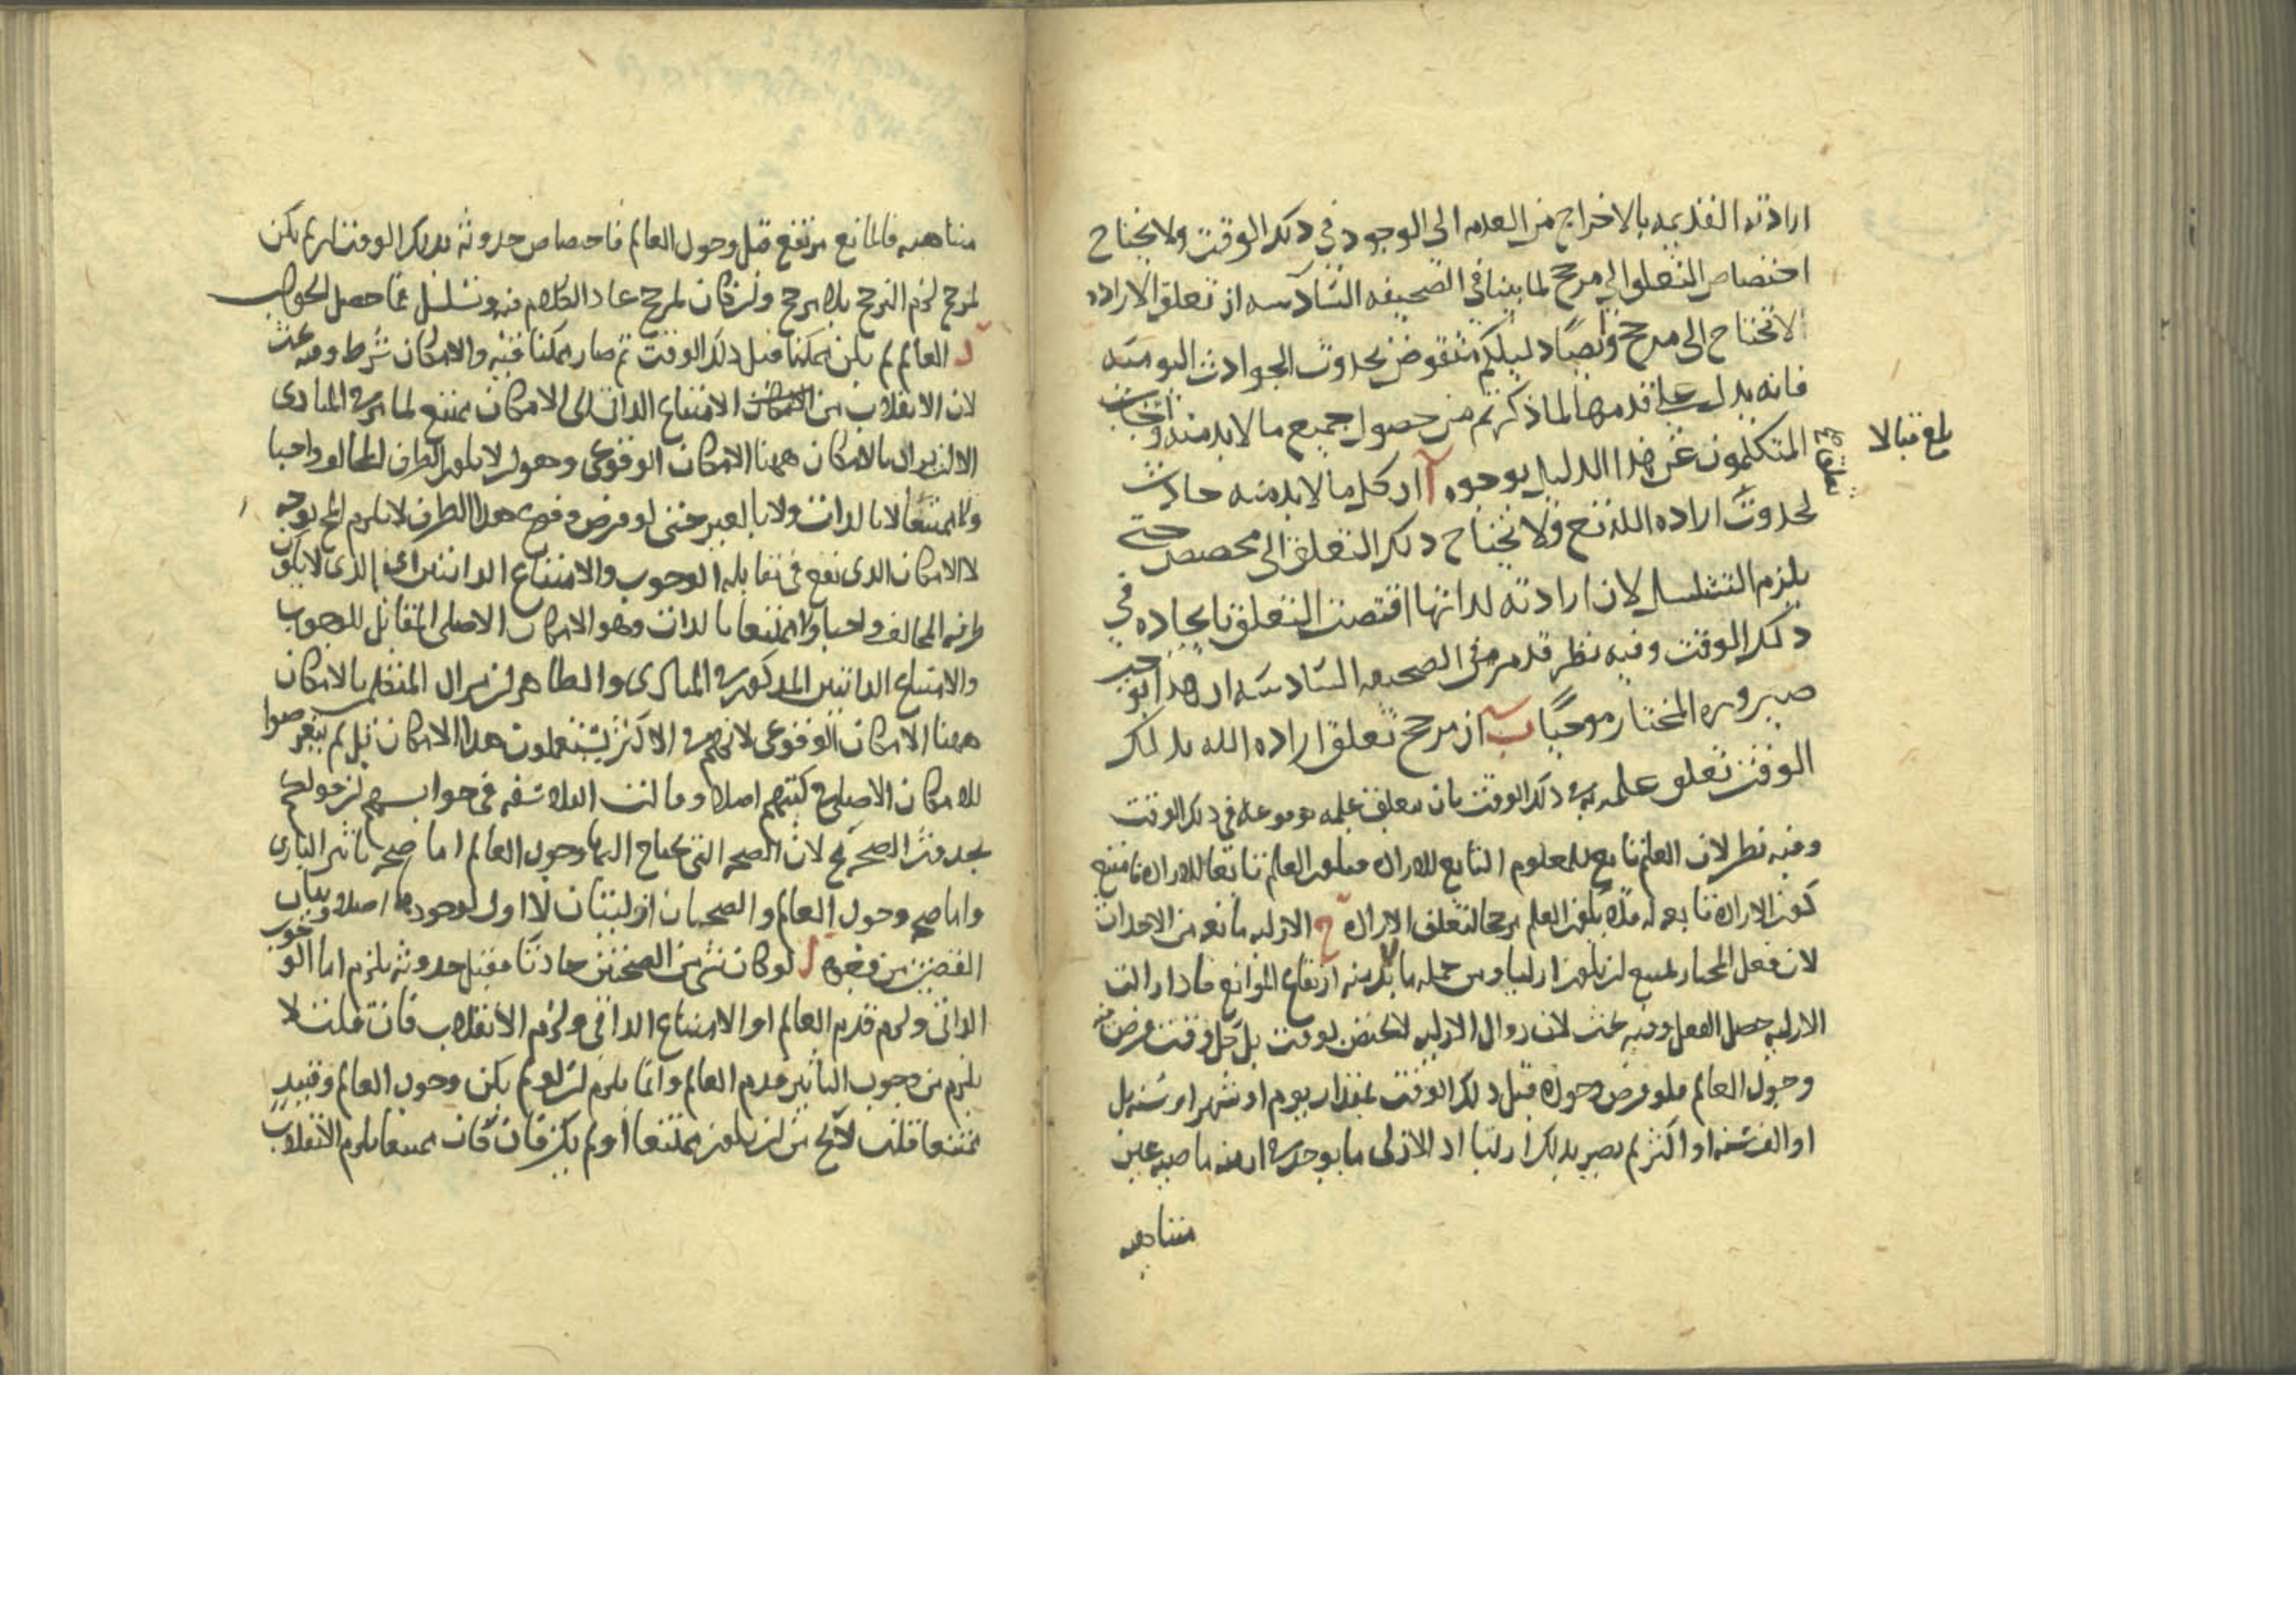 ارادته القديمه بالاخراج من العدم الى الوجود في ذلك الوقت ولا يحتاج
اختصاص التعلق الى مرجح لما بينا في الصحيفه السادسه ان تعلق الاراده
لا تحتاج الى مرجح وايضا دليلكم منقوض بحدوث الحوادث اليوميه
فانه يدل على قدمها لما ذكرتم من حصول جميع ما لا بد منه واجاب
المتكلمون عن هذا الدليل بوجوه آ ان كل ما لا بد منه حادث
تعلق
بلغ قبالا
لحدوث اراده الله تع ولا تحتاج ذلك التعلق الى مخصص حتى
يلزم التسلسل لان ارادته لذاتها اقتضت التعلق بايجاده في
ذلك الوقت وفيه نظر قد مر في الصحيفه السادسه ان هذا يوجب
صيروره المختار موجبا ب ان مرجح تعلق اراده الله بذلك
الوقت تعلق علمه به في ذلك الوقت بان يتعلق علمه بوقوعه في ذلك الوقت
وفيه نظر لان العلم تابع للمعلوم التابع للاراده فيكون العلم تابعا للاراده فامتنع
كون الاراده تابعه له فلا يكون العلم مرجحا لتعلق الاراده ج الازليه مانعه من الاحداث
لان فعل المختار يمتنع ان يكون ازليا ومن جمله ما لا بد منه ارتفاع الموانع فاذا زالت
الازليه حصل الفعل وفيه بحث لان زوال الازليه لا يختص بوقت بل كل وقت فرض فيه
وجود العالم فلو فرض وجوده قبل ذلك الوقت بمقدار يوم او شهر او سنه بل
او الف سنه او اكثر لم يصر بذلك ازليا اذ الازلي ما يوجد في ازمنه ماضيه غير
متناهيه
متناهيه فالمانع مرتفع قبل وجود العالم فاختصاص حدوثه بذلك الوقت ان لم يكن
لمرجح لزم الترجح بلا مرجح وان كان لمرجح عاد الكلام فيه وتسلسل فما حصل الجواب
د العالم لم يكن ممكنا قبل ذلك الوقت ثم صار ممكنا فيه والامكان شرط وفيه بحث
لان الانقلاب من الامتناع الذاتي الى الامكان ممتنع لما مر في المبادى
الا ان يراد بالامكان ههنا الامكان الوقوعى وهو ان لا يكون الطرف المخالف واجبا
ولا ممتنعا لا بالذات ولا بالغير حتى لو فرض وقوع هذا الطرف لا يلزم المح بوجه
لا الامكان الذى يقع في مقابله الوجوب والامتناع الذاتيين اى الذى لا يكون
طرفه المخالف واجبا ولا ممتنعا بالذات وهو الامكان الاصلى المقابل للوجوب
والامتناع الذاتيين المذكور في المبادى والظاهر ان مراد المتكلمين بالامكان
ههنا الامكان الوقوعى لانهم في الاكثر يستعملون هذا الامكان بل لم يتعرضوا
للامكان الاصلى في كتبهم اصلا وقالت الفلاسفه في جوابهم ان قولكم
بحدوث الصحه مح لان الصحه التى يحتاج اليها وجود العالم اما صحه تاثير البارى
واما صحه وجود العالم والصحتان ازليتان لا اول لوجودهما اصلا وبيان
القضيتين من وجوه ا لو كان شئ من الصحتين حادثا فقبل حدوثه يلزم اما الوجوب
الذاتى ولزم قدم العالم او الامتناع الذاتى ولزم الانقلاب فان قلت لا
يلزم من وجوب التاثير قدم العالم وانما يلزم ان لو لم يكن وجود العالم وقتئذ
ممتنعا قلت لا يخ من ان يكون ممتنعا او لم يكن فان كان ممتنعا يلزم الانقلاب